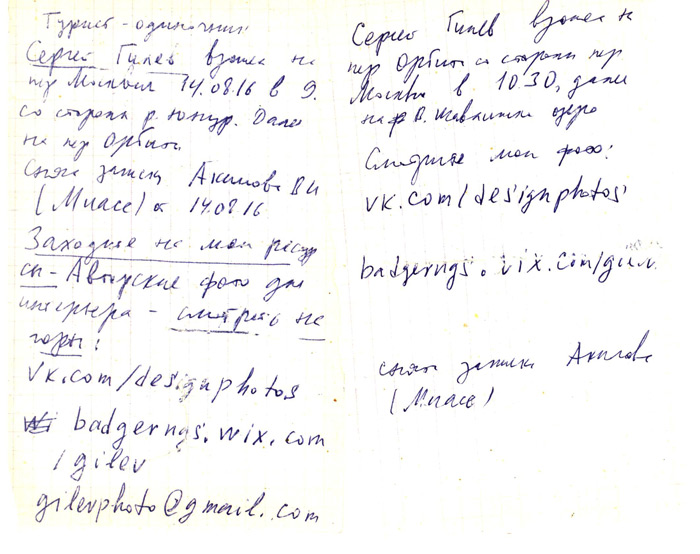 Турист-одиночник
Сергей Гилев взошел на
пер Москвы 14.08.16 в 9.
со стороны р. Юнур. Далее
на пер Орбита
Снята записка Акимова В И
(Миасс) от 14.08.16
Заходите на мои ресур
сы - Авторские фото для
интерьера - смотреть на
горы:
vk.com/designphotos
badgerngs.wix.com
/gilev
gilevphoto@gmail.com
Сергей Гилев взошел на
пер Орбита со стороны пер
Москвы в 10.30, далее
на озеро
Смотрите мои фото:
vk.com/designphotos
badgerngs.wix.com/gilev
снята записка Акимова
(Миасс)